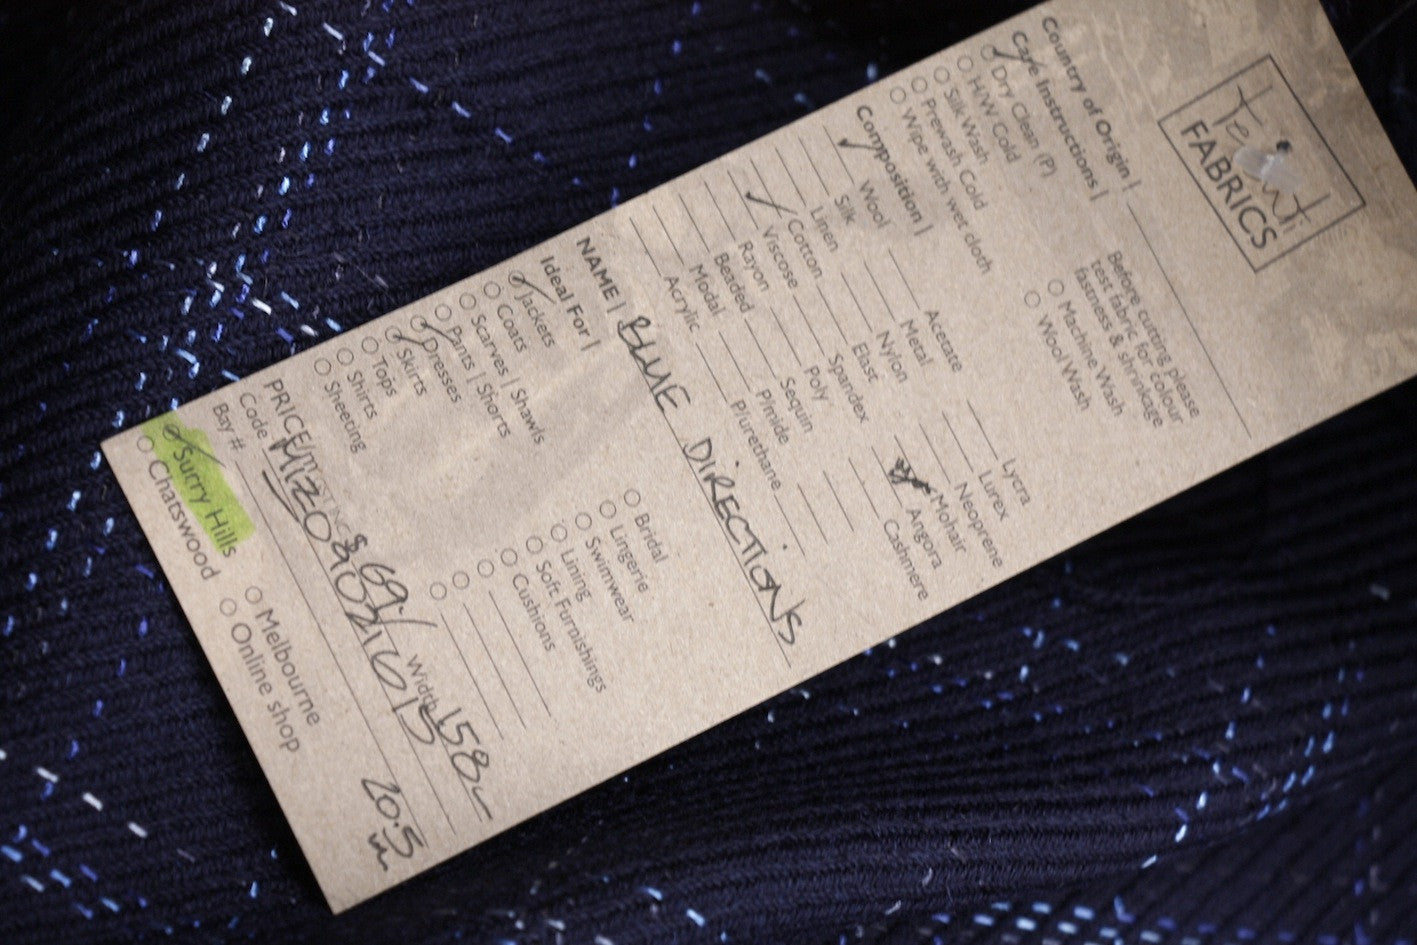 FABRICS
Country of Origin |
Care Instructions |
Dry Clean (P)
H/W Cold
Silk Wash
Prewash Cold
Wipe with wet cloth
Before cutting please
test fabric for colour
fastness & shrinkage
Machine Wash
Wool Wash
Composition |
Wool Acetate Lycra
Silk Metal Lurex
Linen Nylon Neoprene
Cotton Elast Mohair
Viscose Spandex Angora
Rayon Poly Cashmere
Beaded Sequin
Modal P/nide
Acrylic P/urethane
NAME | BLUE DIRECTIONS
Ideal For |
Jackets Bridal
Coats Lingerie
Scarves | Shawls Swimwear
Pants | Shorts Lining
Dresses Soft Furnishings
Skirts Cushions
Tops
Shirts
Sheeting
PRICE/m $69 Width 158
Code
Bay # 20.5 m
Surry Hills Melbourne
Chatswood Online shop